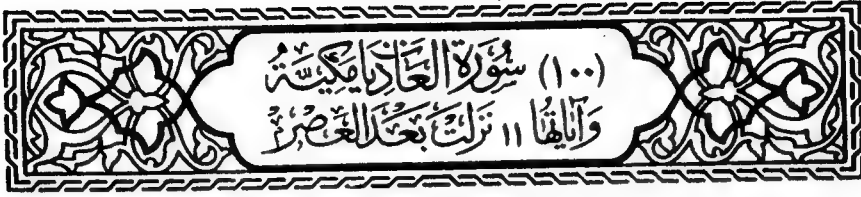 (١٠٠) سُورَةُ العَادِيَاتِ مَكِّيَّةٌ
وَآيَاتُهَا ١١ نَزَلَتْ بَعْدَ العَصْرِ